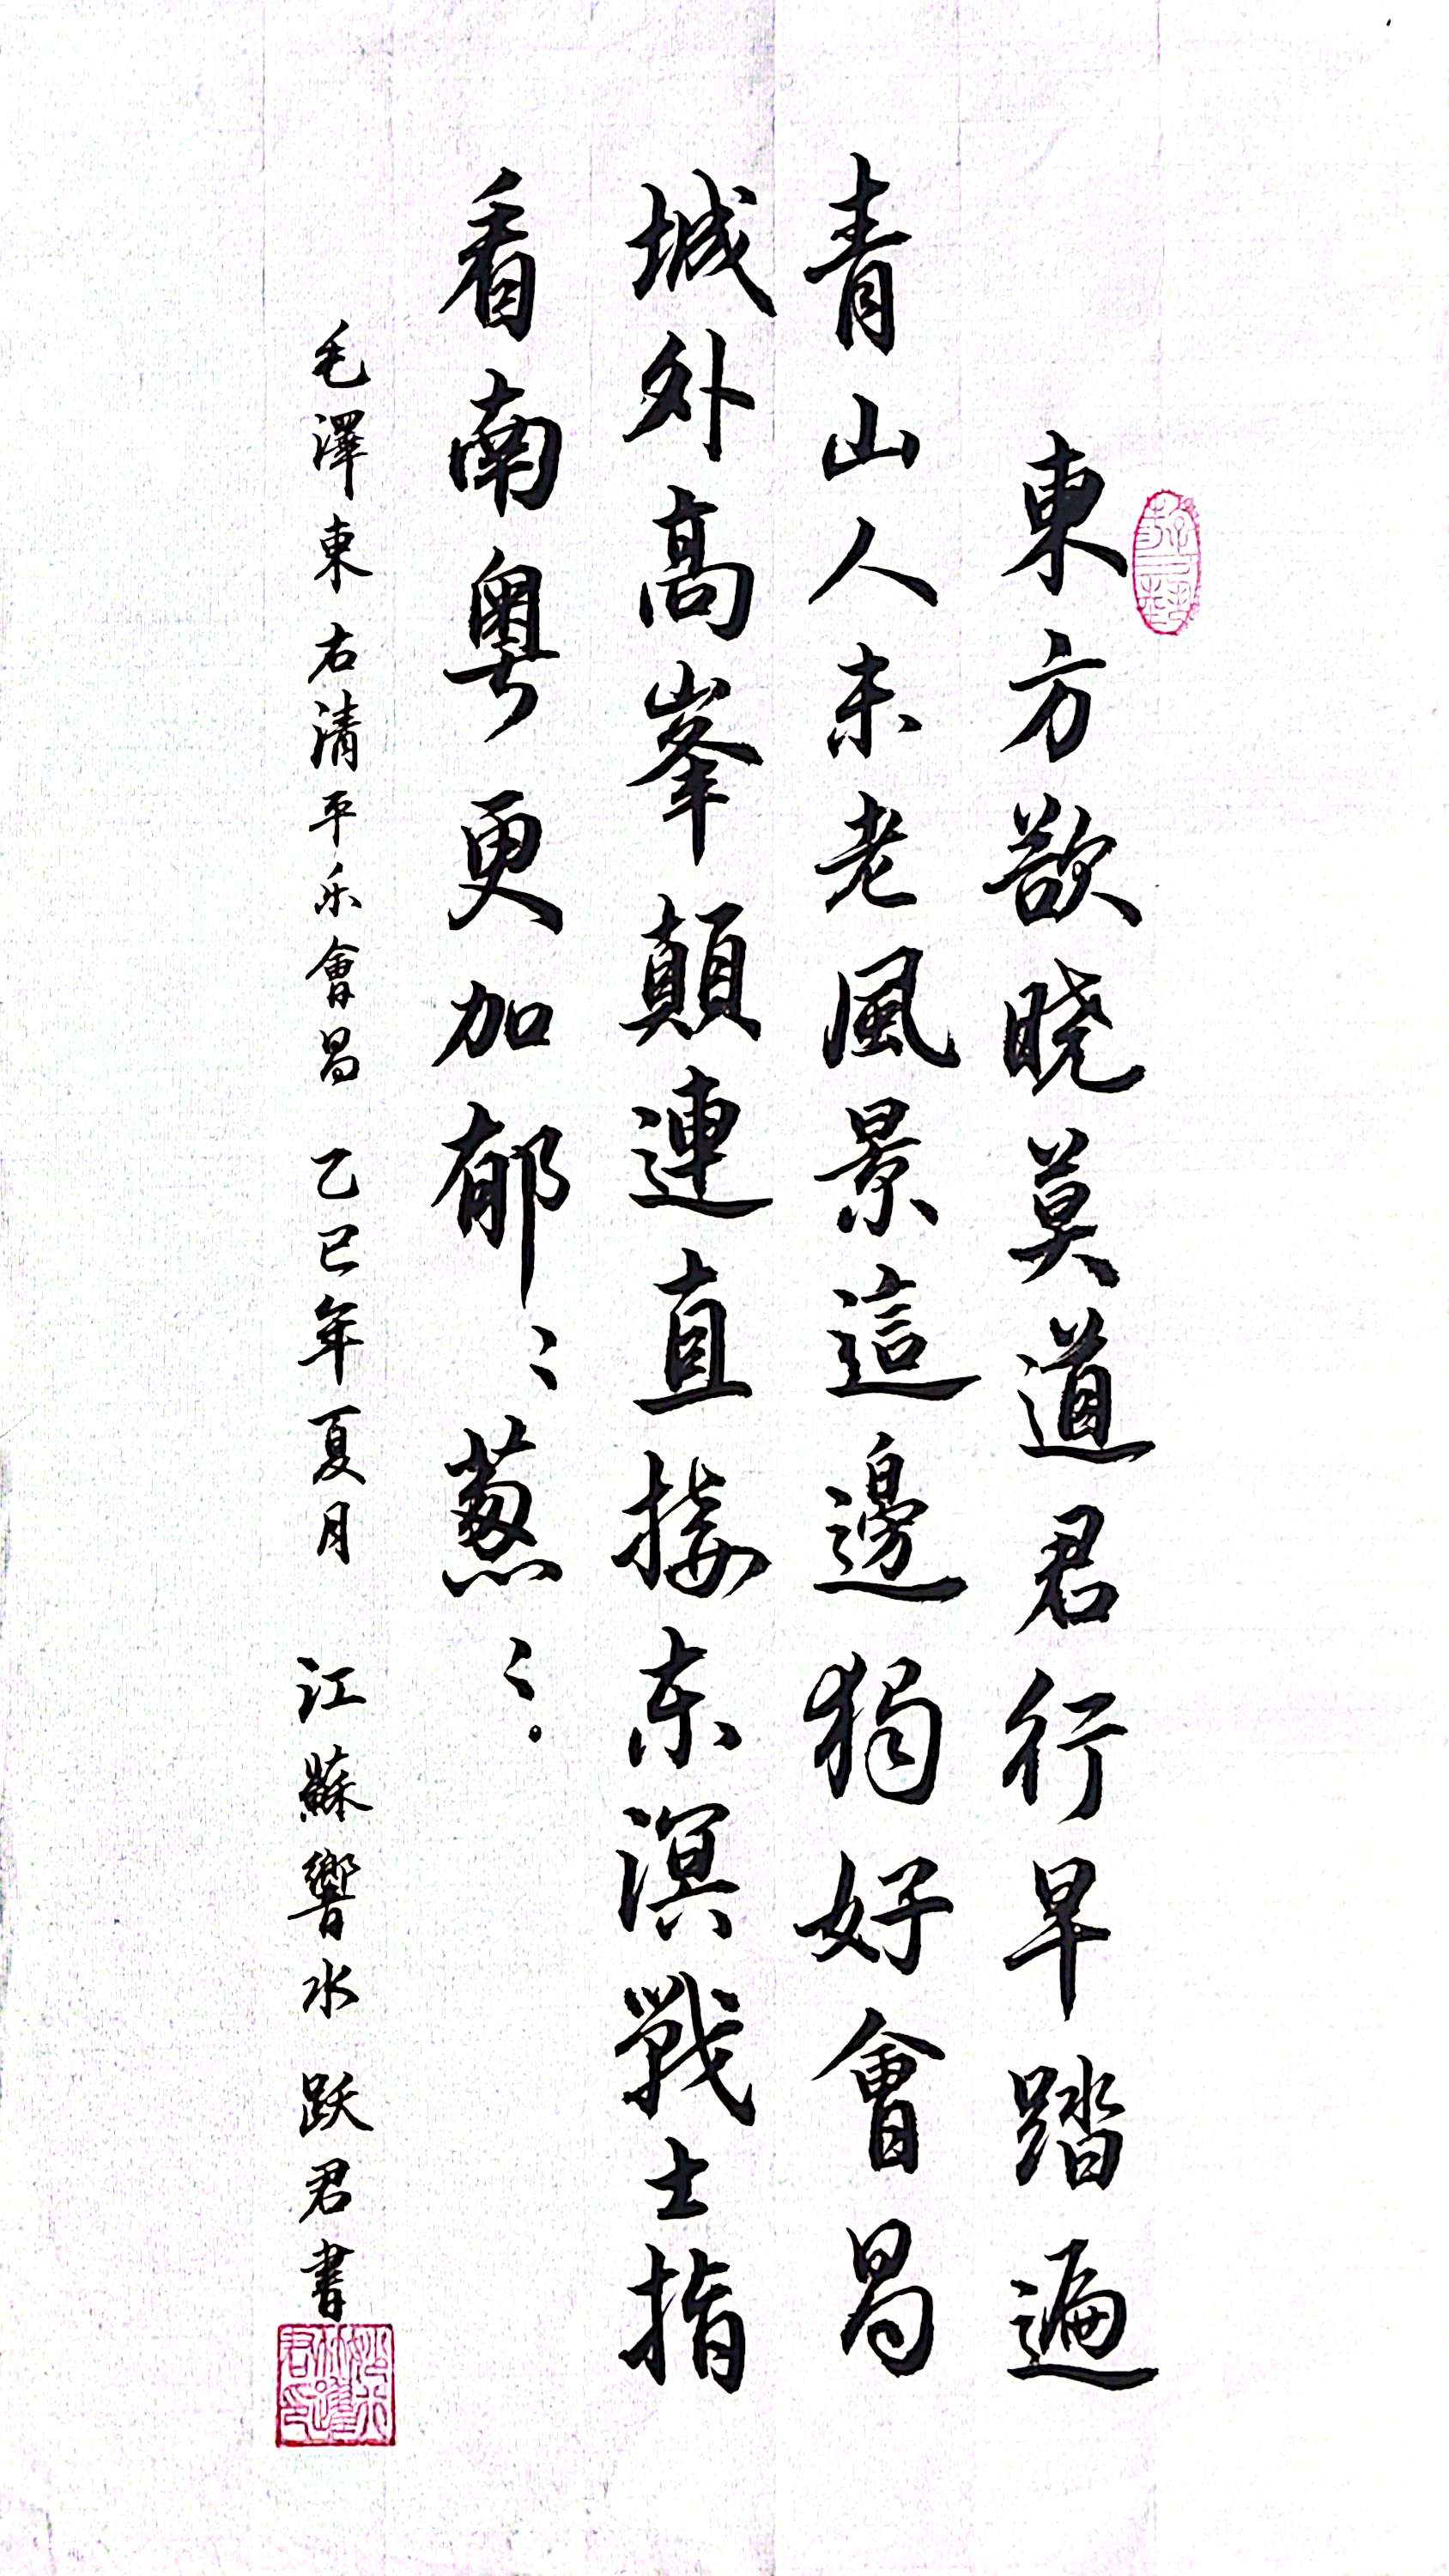 東方欲晓莫道君行早踏遍
青山人未老風景這邊獨好會昌
城外高峯顛連直接东溟戰士指
看南粤更加郁〻葱〻。
毛澤東右清平乐會昌 乙巳年夏月 江蘇響水 跃君書